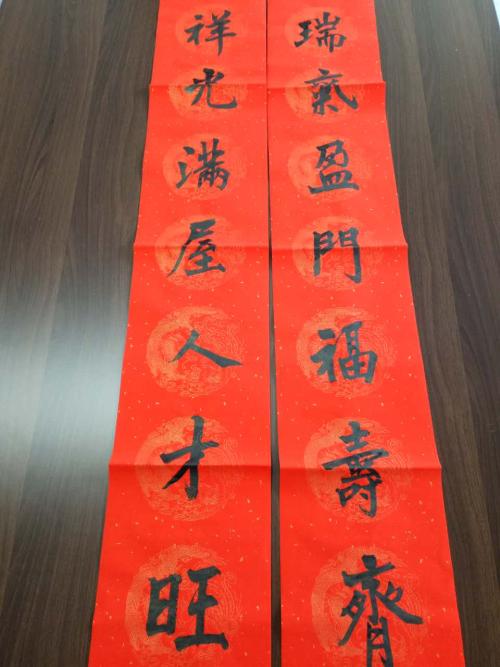 瑞氣盈門福壽齊
祥光滿屋人才旺